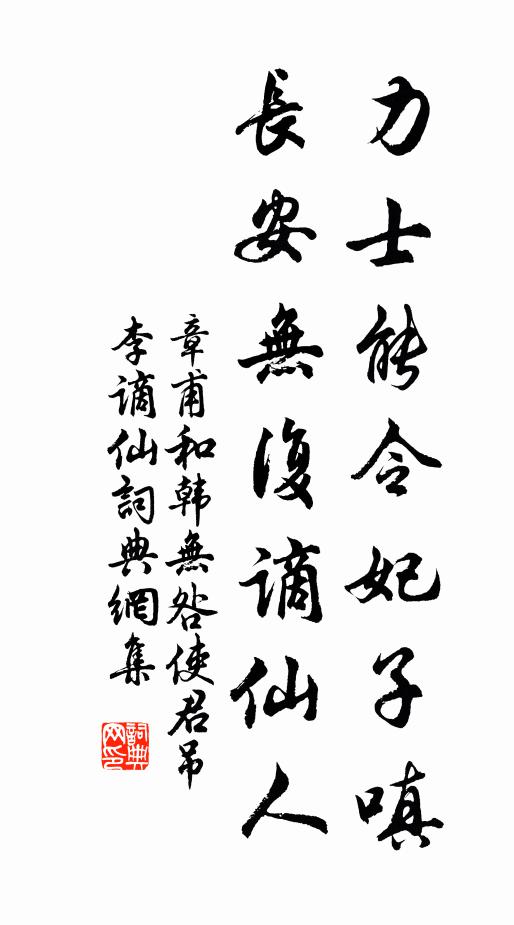 力士能令妃子嗔
長安無復謫仙人
章甫和韩無咎使君吊
李謫仙詞典網集
詞典网印